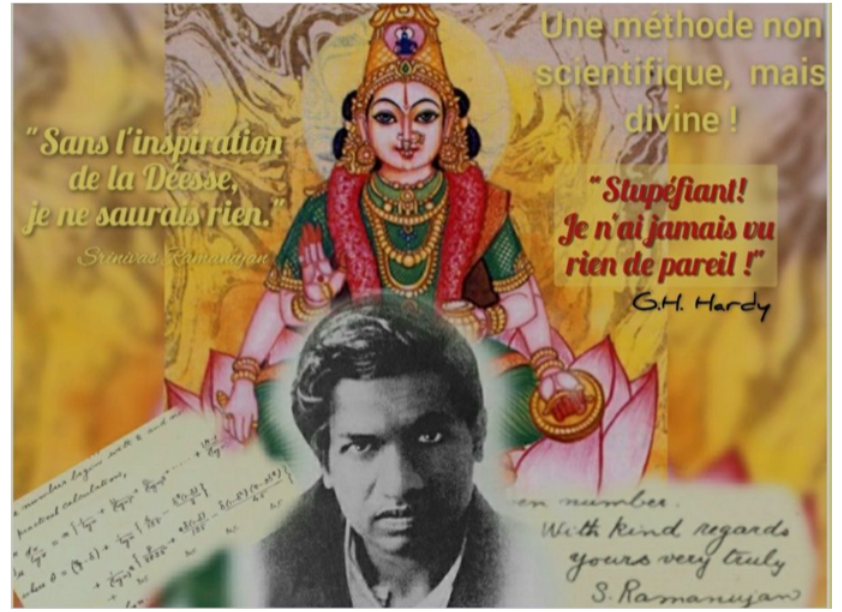 Une méthode non
scientifique, mais
divine !
"Sans l'inspiration
de la Déesse,
je ne saurais rien."
Srinivas Ramanujan
"Stupéfiant!
Je n'ai jamais vu
rien de pareil !"
G.H. Hardy
number begin with 2 and
practical calculations,
where
en number.
With kind regards
yours very truly
S. Ramanujan